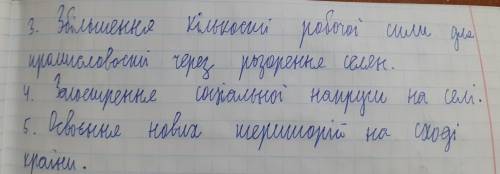 3. Збільшення кількості робочої сили для
промисловості через розорення селян.
4. Загострення соціальної напруги на селі.
5. Освоєння нових територій на сході
країни.